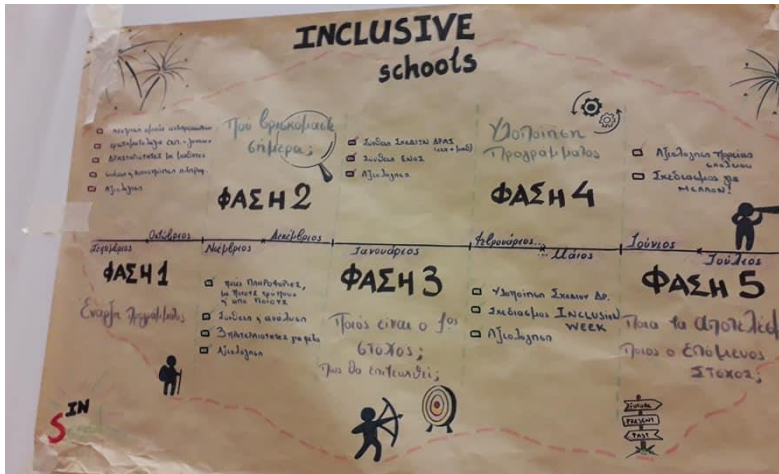 INCLUSIVE
schools
Που βρισκόμαστε
σήμερα;
Σύνθεση Σχεδίων ΔΡΑΣ
Σύνθεση ΕΝΟΣ
Αξιολόγηση
Υλοποίηση
Προγράμματος
Αξιολόγηση πορείας
Σχεδιασμός για
ΜΕΛΛΟΝ!
Αξιολόγηση
ΦΑΣΗ 2
ΦΑΣΗ 4
Οκτώβριος
Νοέμβριος
Δεκέμβριος
Ιανουάριος
Φεβρουάριος...
Μάιος
Ιούνιος
Ιούλιος
ΦΑΣΗ 1
Έναρξη Προγράμματος
ποιές ΠΛΗΡΟΦΟΡΙΕΣ,
με ποιους τρόπους
Σύνθεση & ανάλυση
Αξιολόγηση
ΦΑΣΗ 3
Ποιός είναι ο 1ος
στόχος;
Πως θα επιτευχθεί;
Υλοποίηση Σχεδίου Δρ.
Σχεδιασμός INCLUSION
WEEK
Αξιολόγηση
ΦΑΣΗ 5
Ποια τα αποτελέσ
Ποιος ο επόμενος
ΣΤΟΧΟΣ;
FUTURE
PRESENT
PAST
IN
S